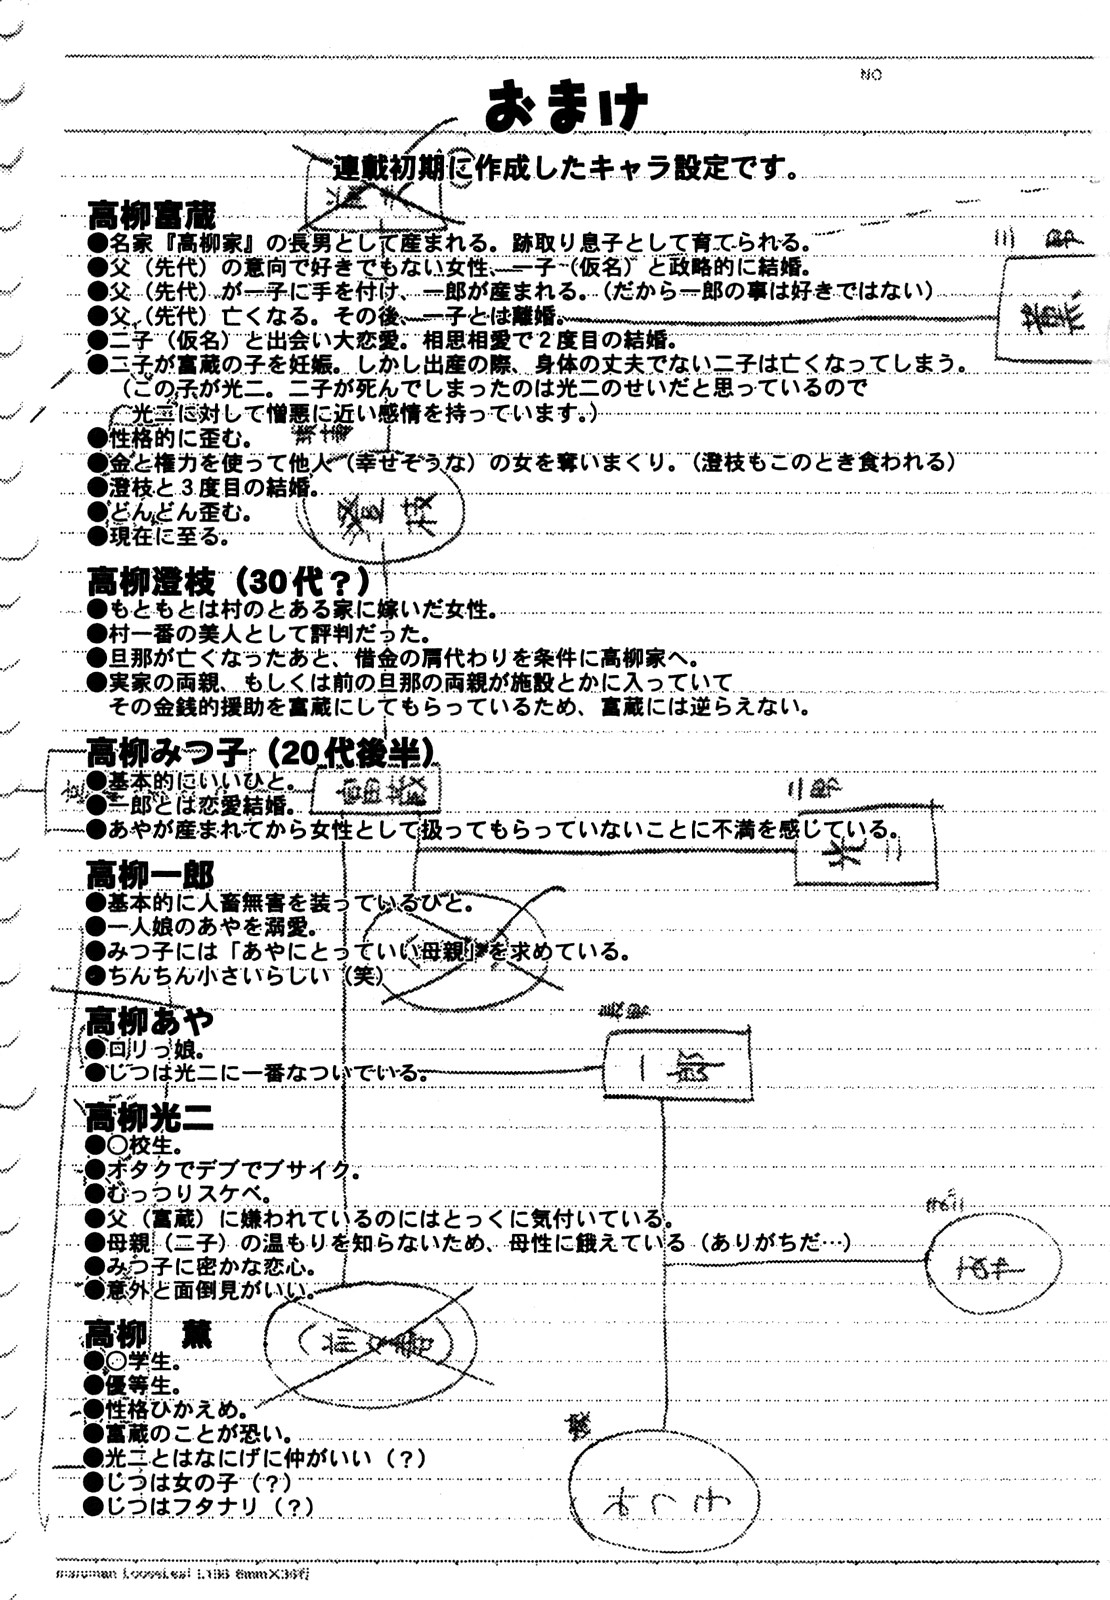 NO
おまけ
連載初期に作成したキャラ設定です。
高柳富蔵
●名家『高柳家』の長男として産まれる。跡取り息子として育てられる。
●父（先代）の意向で好きでもない女性、一子（仮名）と政略的に結婚。
●父（先代）が一子に手を付け、一郎が産まれる。（だから一郎の事は好きではない）
●父（先代）亡くなる。その後、一子とは離婚。
●二子（仮名）と出会い大恋愛。相思相愛で２度目の結婚。
●二子が富蔵の子を妊娠。しかし出産の際、身体の丈夫でない二子は亡くなってしまう。
（この子が光二。二子が死んでしまったのは光二のせいだと思っているので
光二に対して憎悪に近い感情を持っています。）
●性格的に歪む。
●金と権力を使って他人（幸せそうな）の女を奪いまくり。（澄枝もこのとき食われる）
●澄枝と３度目の結婚。
●どんどん歪む。
●現在に至る。
澄枝
高柳澄枝（30代？）
●もともとは村のとある家に嫁いだ女性。
●村一番の美人として評判だった。
●旦那が亡くなったあと、借金の肩代わりを条件に高柳家へ。
●実家の両親、もしくは前の旦那の両親が施設とかに入っていて
その金銭的援助を富蔵にしてもらっているため、富蔵には逆らえない。
高柳みつ子（20代後半）
●基本的にいいひと。
●一郎とは恋愛結婚。
●あやが産まれてから女性として扱ってもらっていないことに不満を感じている。
光二
高柳一郎
●基本的に人畜無害を装っているひと。
●一人娘のあやを溺愛。
●みつ子には「あやにとっていい母親」を求めている。
●ちんちん小さいらしい（笑）
高柳あや
●ロリっ娘。
●じつは光二に一番なついでいる。
一郎
高柳光二
●〇校生。
●オタクでデブでブサイク。
●むっつりスケベ。
●父（富蔵）に嫌われているのにはとっくに気付いている。
●母親（二子）の温もりを知らないため、母性に餓えている（ありがちだ…）
●みつ子に密かな恋心。
●意外と面倒見がいい。
高柳　薫
●〇学生。
●優等生。
●性格ひかえめ。
●富蔵のことが恐い。
●光二とはなにげに仲がいい（？）
●じつは女の子（？）
●じつはフタナリ（？）